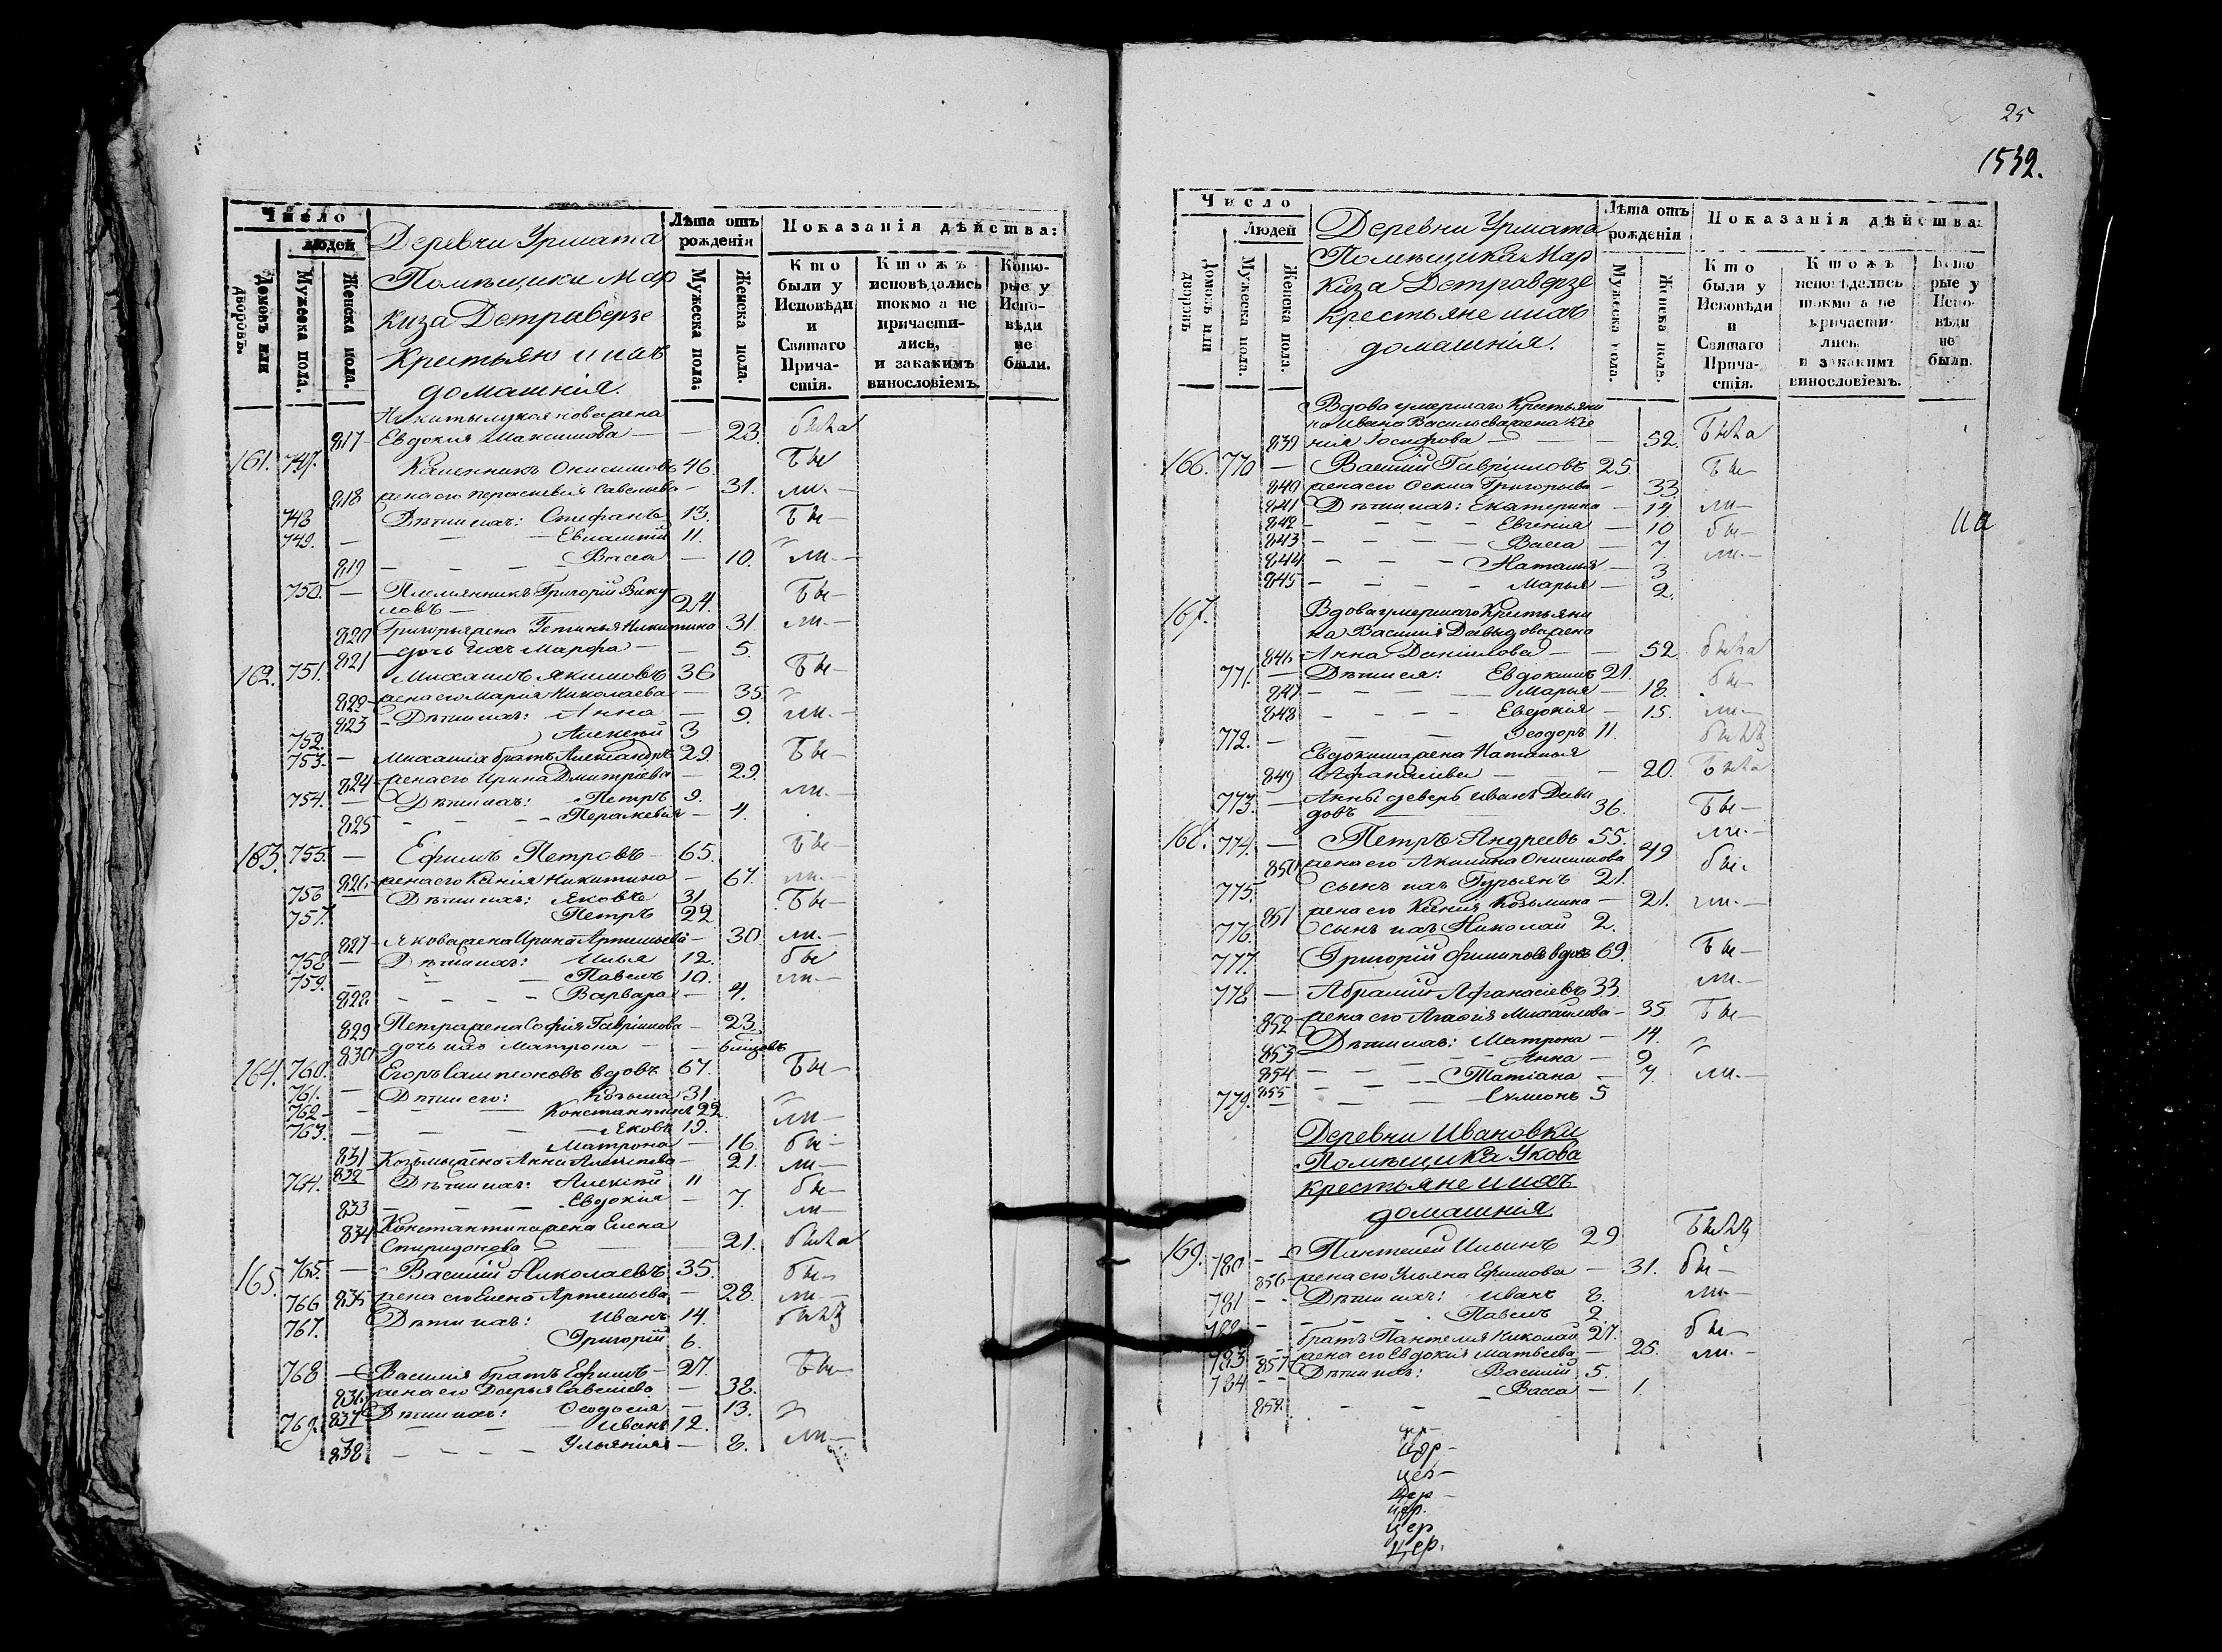 25
1539.
Число
людей
Домовъ или дворовъ.
Мужеска пола.
Женска пола.
Деревни Урмата
Помѣщика Мар
киза Детраверзе
Крестьяне и ихъ
домашнія.
Лѣта отъ рожденія
Мужеска пола;
Женска пола.
Показанія дѣйства:
Кто были у Исповѣди и Святаго Причастія.
Ктожъ исповѣдались токмо а не причастились, и закакимъ винословіемъ.
Которые у Исповѣди не были.
Никиты жена
817 Евдокия Максимова — 23. была
161. 747. Онисимовъ 46. Бы
818 жена его Параскевия Савельева — 31. ли. —
748 Дѣти ихъ: Стефанъ 13. Бы —
749. — Евлампий 11.
819 — Васса — 10. ли. —
750. — Племянникъ Григорій Вику
ловъ — 24. Бы —
820 Григорья жена Устинья Никитина 31. ли. —
821 дочь ихъ Марфа — 5.
162. 751. Михаилъ Якимовъ 36 Бы —
822 жена его Мария Николаева — 35.
823 — Дѣти ихъ: Анна — 9. ли. —
752. Алексѣй 3
753. — Михаила братъ Александръ 29. Бы —
824 жена его Ирина Дмитріева — 29.
754. — Дѣти ихъ: Петръ 9. ли. —
825 — Параскевия — 4.
163. 755. — Ефимъ Петровъ — 65. Бы —
826 жена его Ксенія Никитина — 67. ли. —
756 — Дѣти ихъ: Яковъ 31 Бы —
757. Петръ 22
827 Якова жена Ирина Артемьева — 30. ли. —
758 — Дѣти ихъ: Илья 12. бы
759. — Павелъ 10. ли. —
828. — Варвара — 4.
829 Петра жена Софія Гавріилова — 23.
830 дочь ихъ Матрона — 6 мѣсяцовъ
164. 760. Егоръ Сампсоновъ вдовъ 67. Бы —
761. — Дѣти его: Козьма 31.
762 — Константинъ 22. ли —
763. — Яковъ 19.
831 — Матрона — 16 бы —
832 Козьмы жена Анна Алексѣева — 21. ли —
764. Дѣти ихъ: Алексѣй 11 бы —
833 — Евдокия — 7. ли —
834 Константина жена Елена
Спиридонова — 21. была
165. 765. — Василій Николаевъ 35. бы —
766 835 жена его Елена Артемьева — 28. ли —
767. Дѣти ихъ: Иванъ 14.
Григорій 6.
768 — Василия братъ Ефимъ — 27. Бы —
836 жена его Дарья Савельева — 38.
837 Дѣти ихъ: Феодосия — 13.
769. — Иванъ 12. ли —
838 — Ульяния — 8.
Число
Людей
Домовъ или дворовъ
Мужеска пола.
Женска пола.
Деревни Урмата
Помѣщика Мар
киза Детраверзе
Крестьяне и ихъ
домашнія.
Лѣта отъ рожденія
Мужеска пола.
Женска пола.
Показанія дѣйства:
Кто были у Исповѣди и Святаго Причастія.
Ктожъ исповѣдались токмо а не причастились и закакимъ винословіемъ.
Которые у Исповѣди не были.
Вдова умершаго Крестьяни
на Ивана Васильева жена Ксе
839 нія Іосифова — 52. Была
166. 770 — Василій Гавріиловъ 25 Бы —
840 жена его Фекла Григорьева — 33
841 Дѣти ихъ: Екатерина — 14. ли —
842 — Евгения — 10 бы —
843 — Васса — 7. ли. —
844 — Наталья — 3
845 — Марья — 2.
167. Вдова умершаго Крестьяни
на Василія Давыдова жена
846 Анна Данилова — 52. была
771. — Дѣти ея: Евдокимъ 21. бы —
847 — Марья — 18.
848 — Евдокія — 15. ли —
772. — Феодоръ 11.
Евдокима жена Наталья
849 Афанасіева — 20. Была
773. — Анны деверь Иванъ Дави
довъ 36. Бы —
168. 774. — Петръ Андреевъ 55. ли. —
850 жена его Акилина Онисимова 49 бы.
775. сынъ ихъ Гурьянъ 21.
851 жена его Ксения Козьмина — 21. ли. —
776. сынъ ихъ Николай 2.
777. Григорій Филиповъ вдовъ 69. Бы —
778 — Абрамій Афанасіевъ 33. ли —
852 жена его Агафія Михайлова — 35 Бы —
853 Дѣти ихъ: Матрона — 14.
854 — Анна — 9
855 — Татіана — 7. ли. —
779. — Симеонъ 5
Деревни Ивановки
Помѣщика Укова
крестьяне и ихъ
домашнія
169. 780 — Пантелей Ильинъ 29
856 жена его Ульяна Ефимова — 31. бы —
781 — Дѣти ихъ: Иванъ 8. ли —
782 — Павелъ 2.
783 — братъ Пантелея Николай 27. бы —
857 жена его Евдокія Матвеева — 25. ли. —
784 — Дѣти ихъ: Василій 5.
858. — Васса — 1.
цер —
цер —
цер —
цер.
цер
цер.